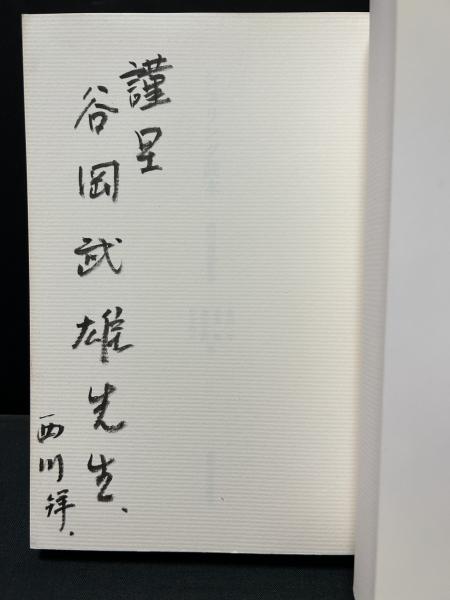 謹呈
谷岡武雄先生
西川祥